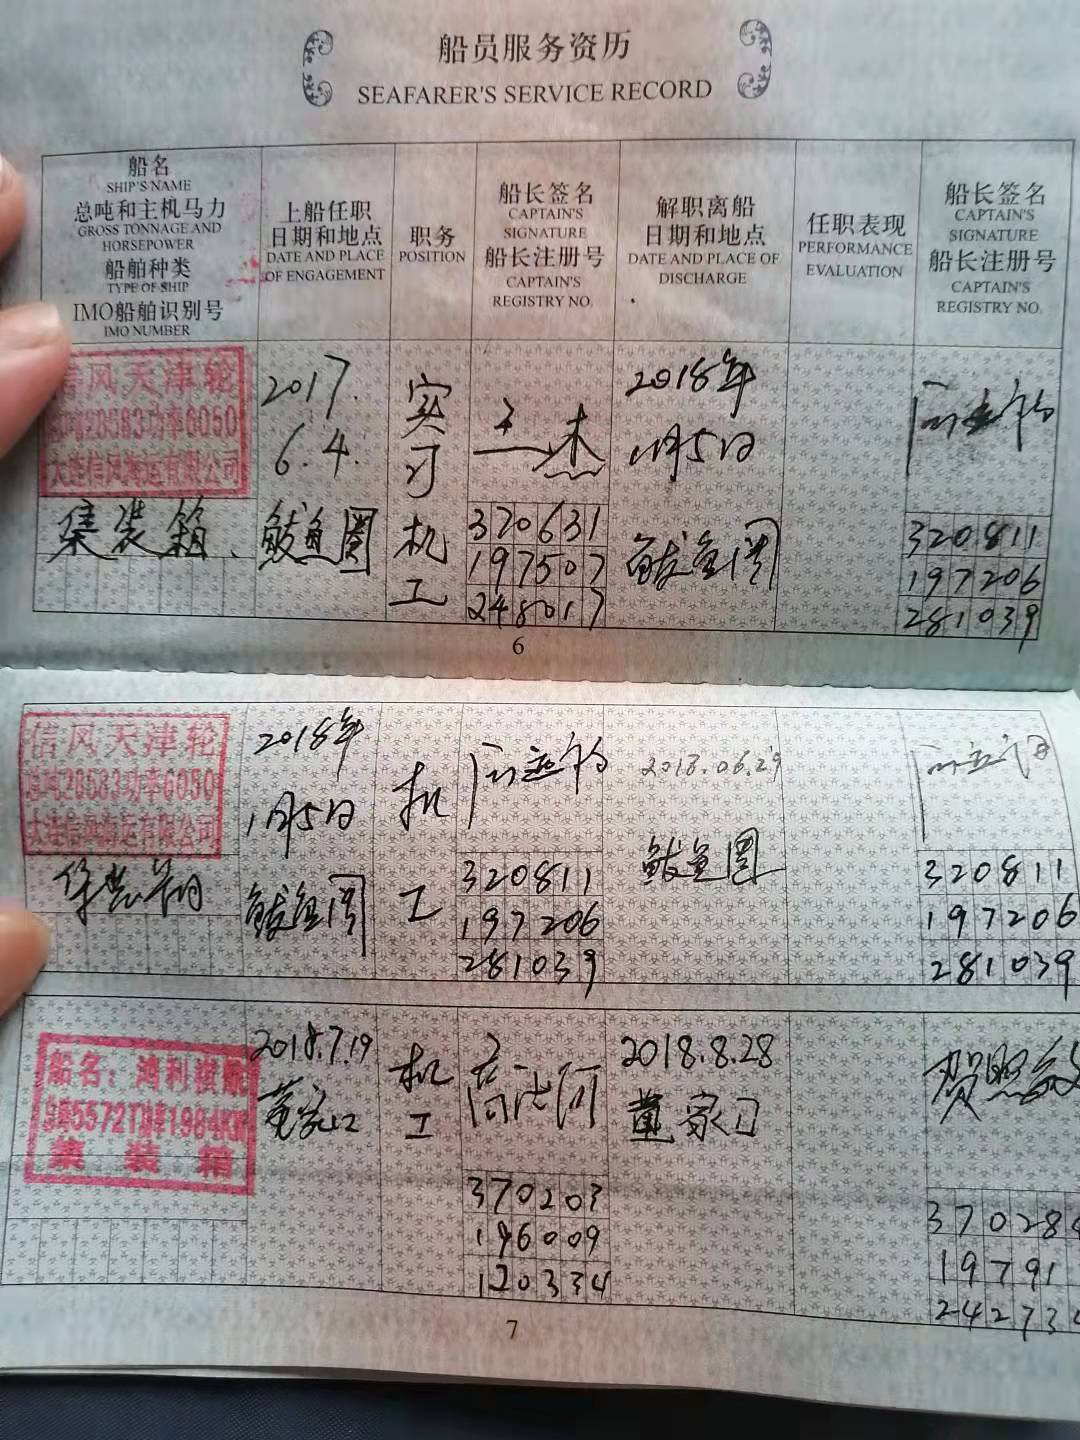 船员服务资历
SEAFARER'S SERVICE RECORD
船名
SHIP'S NAME
总吨和主机马力
GROSS TONNAGE AND
HORSEPOWER
船舶种类
TYPE OF SHIP
IMO船舶识别号
IMO NUMBER
上船任职
日期和地点
DATE AND PLACE
OF ENGAGEMENT
职务
POSITION
船长签名
CAPTAIN'S
SIGNATURE
船长注册号
CAPTAIN'S
REGISTRY NO.
解职离船
日期和地点
DATE AND PLACE OF
DISCHARGE
任职表现
PERFORMANCE
EVALUATION
船长签名
CAPTAIN'S
SIGNATURE
船长注册号
CAPTAIN'S
REGISTRY NO.
信风天津轮
总吨28583功率6050
大连信风海运有限公司
集装箱
2017.
6.4.
鲅鱼圈
实
习
机
工
320631
197507
248017
2018年
1月5日
鲅鱼圈
320811
197206
281039
6
信风天津轮
总吨28583功率6050
大连信风海运有限公司
集装箱
2018年
1月5日
鲅鱼圈
机
工
320811
197206
281039
2018.06.29
鲅鱼圈
320811
197206
281039
船名：鸿利
5572T功率1984KW
集装箱
2018.7.19
董家口
机
工
370203
196009
120334
2018.8.28
董家口
370284
19791
24273
7